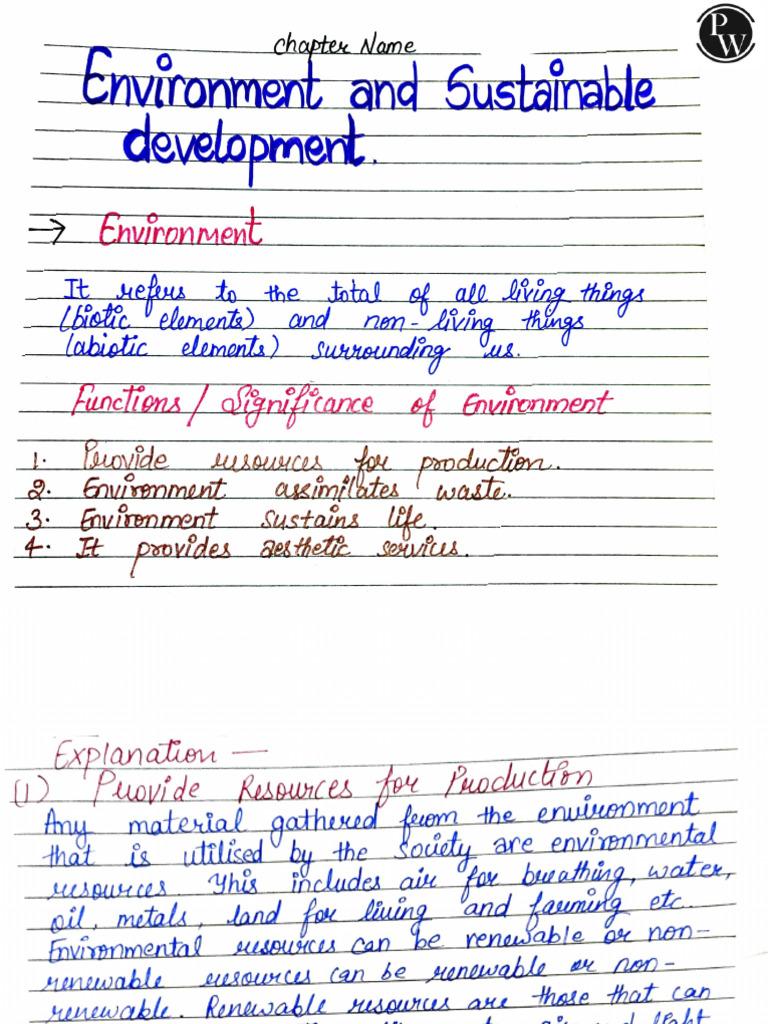 PW
Chapter Name
Environment and Sustainable
development.
→ Environment
It refers to the total of all living things
(biotic elements) and non-living things
(abiotic elements) surrounding us.
Functions / Significance of Environment
1. Provide resources for production.
2. Environment assimilates waste.
3. Environment sustains life.
4. It provides aesthetic services.
Explanation —
(1) Provide Resources for Production
Any material gathered from the environment
that is utilised by the society are environmental
resources. This includes air for breathing, water,
oil, metals, land for living and farming etc.
Environmental resources can be renewable or non-
renewable resources can be renewable or non-
renewable. Renewable resources are those that can